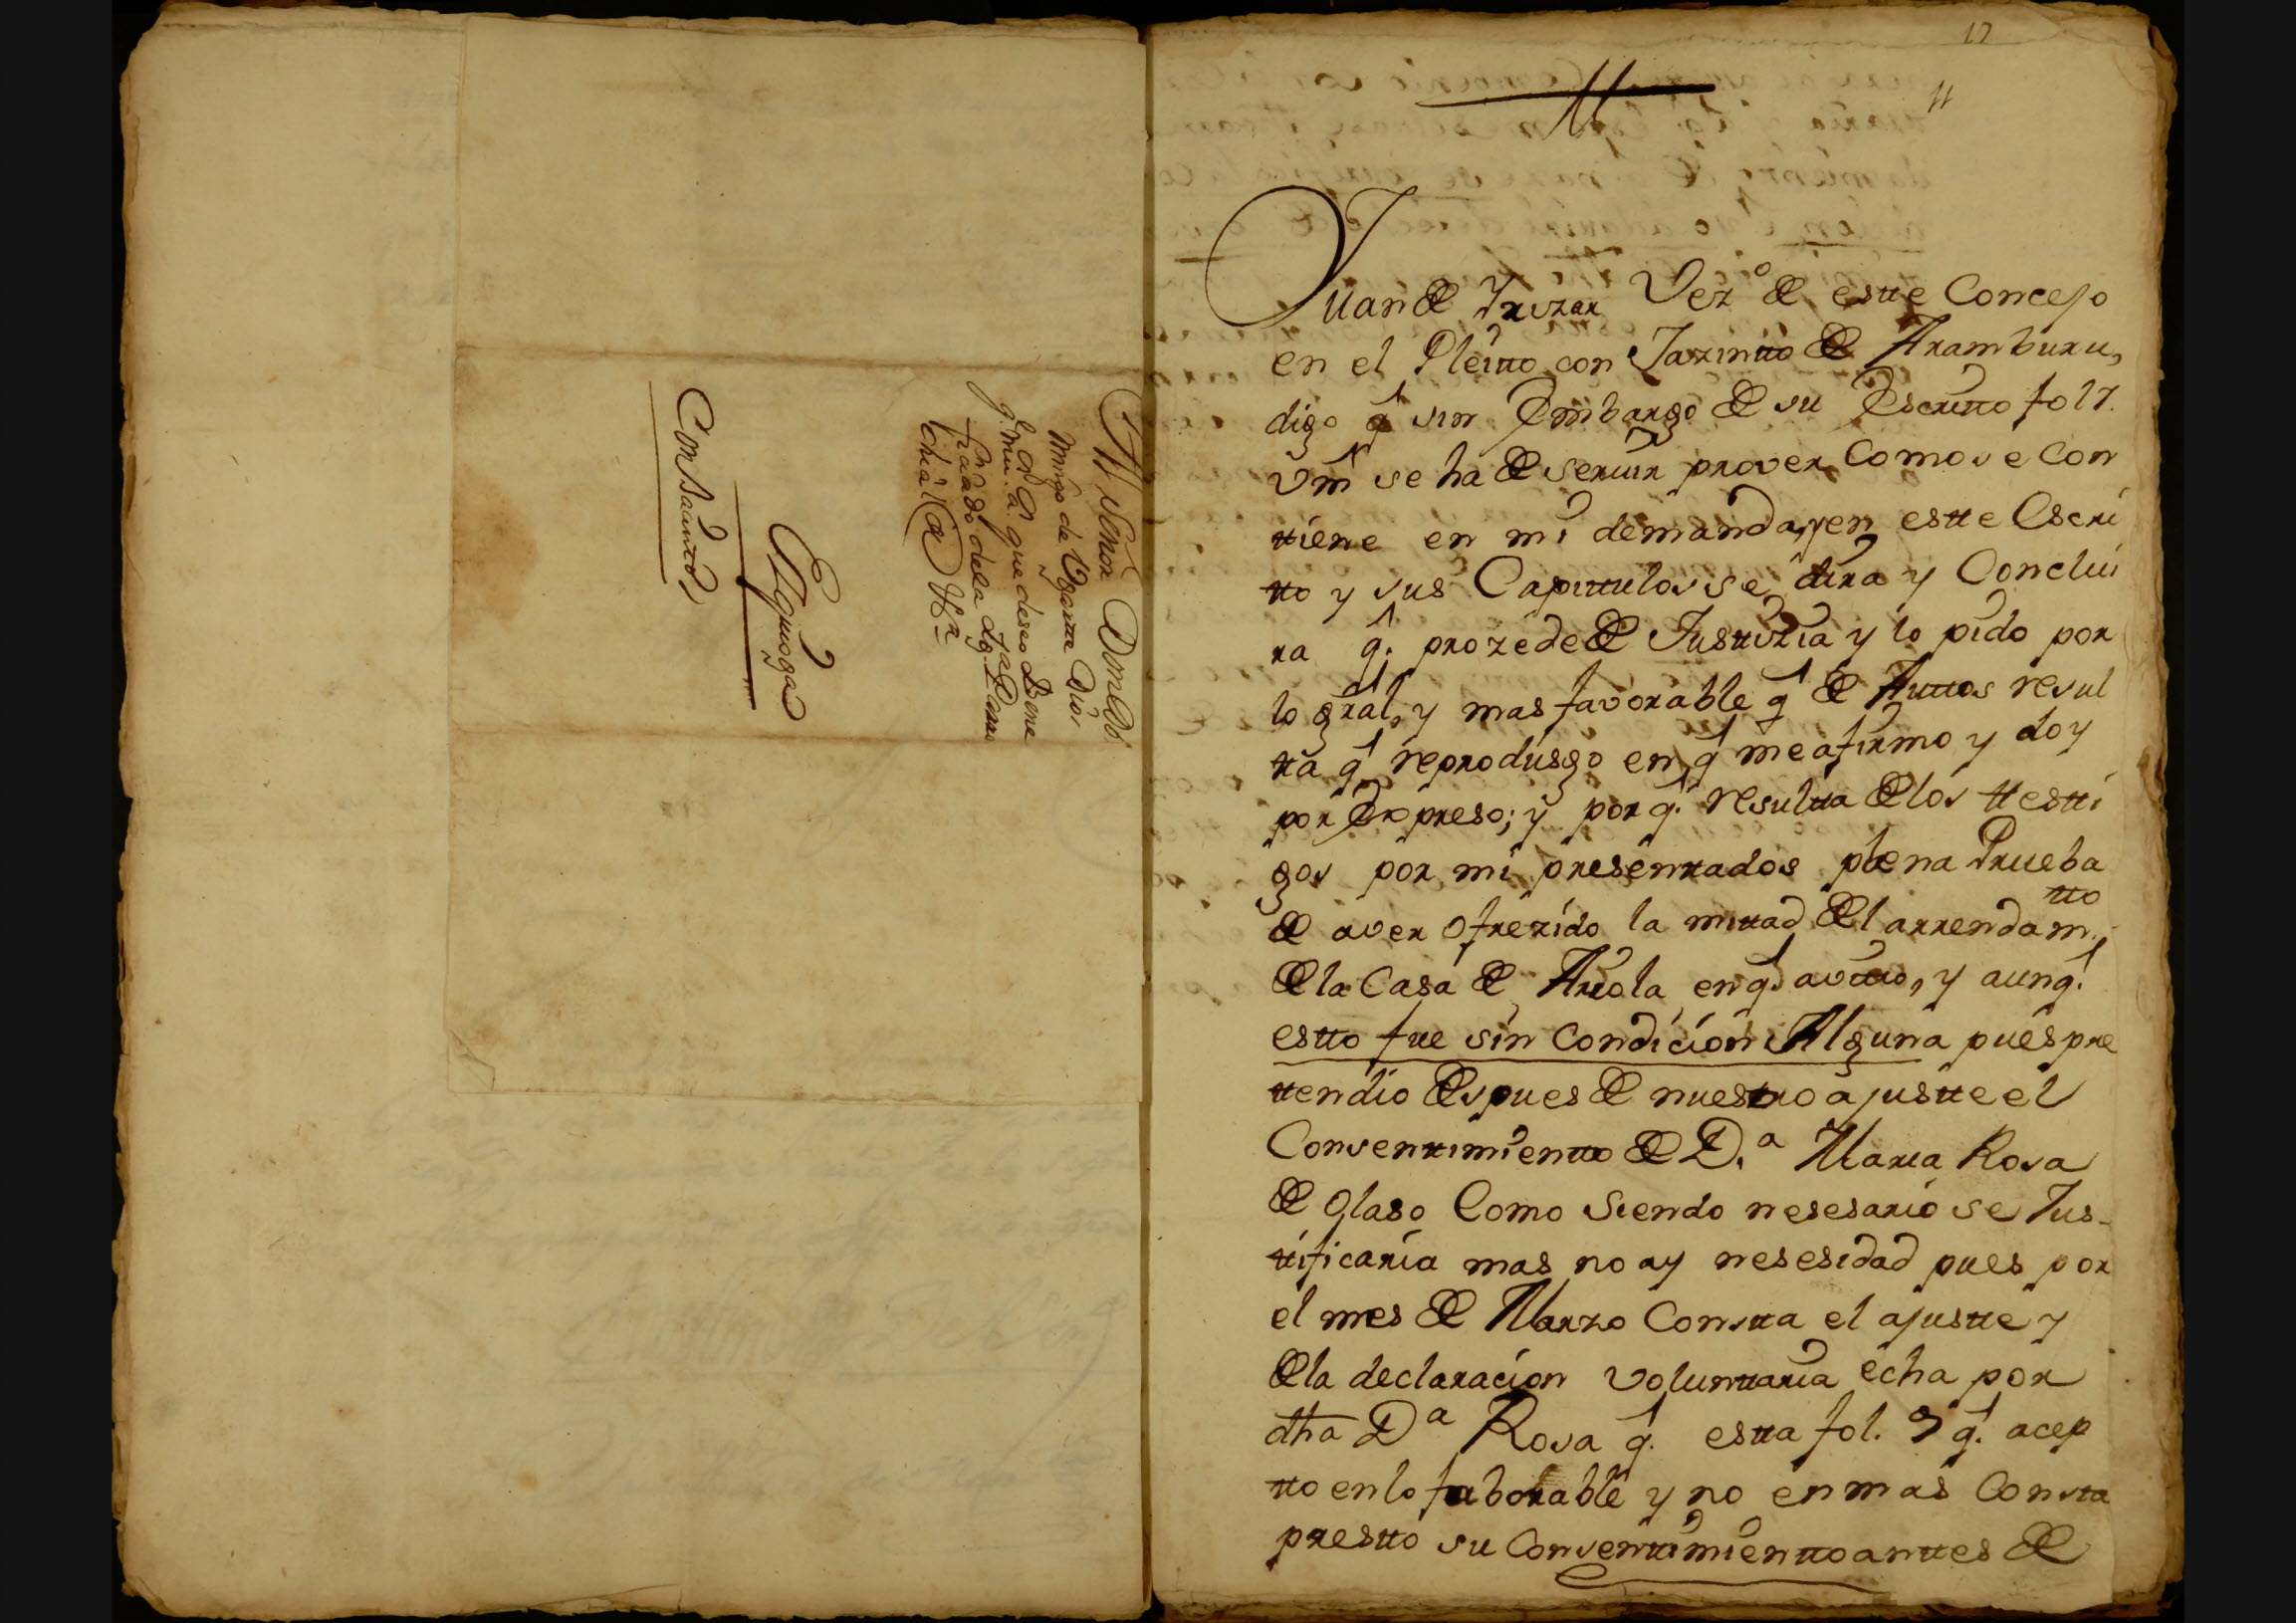 Al Señor Domingo
mingo de Ugarte Dios
g.^e m.^s a.^s que deseo Bene
ficiado de la Ygl.^a Parro
chial @ V.^a
Elguoga
Consacinto
17
11
Juan de Yrizar Vez.^o de estte Concejo
en el Pleitto con Jazintto de Aramburu,
digo q.^e sin Embargo de su Escritto fol 7.
Vm se ha de servir prover Como se Con
ttiene en mi demanda, y en estte Escri
tto y sus Capittulos se dira y Conclui
ra q.^e prozede de Justizia y lo pido por
lo gral, y mas favorable q.^e de Auttos resul
tta q.^e reprodusgo en q.^e me afirmo y doy
por Expreso; y por q.^e resultta de los ttestti
gos por mi presenttados plena Prueba
de aver Ofrezido la mittad del arrendam.^tto
de la Casa de Ariola en q.^e avitto, y aunq.^e
estto fue sin Condicion Alguna pues pre
ttendio despues de nuestro ajustte el
Consenttimientto de D.^a Maria Rosa
de Olaso Como Siendo nesesario se Jus-
ttificaria mas no ay nesesidad pues por
el mes de Marzo Constta el ajustte y
de la declaracion volunttaria echa por
dha D^a Rosa q.^e estta fol. 9 q.^e acep
tto en lo faborable y no en mas Consta
prestto su Consenttimientto anttes de